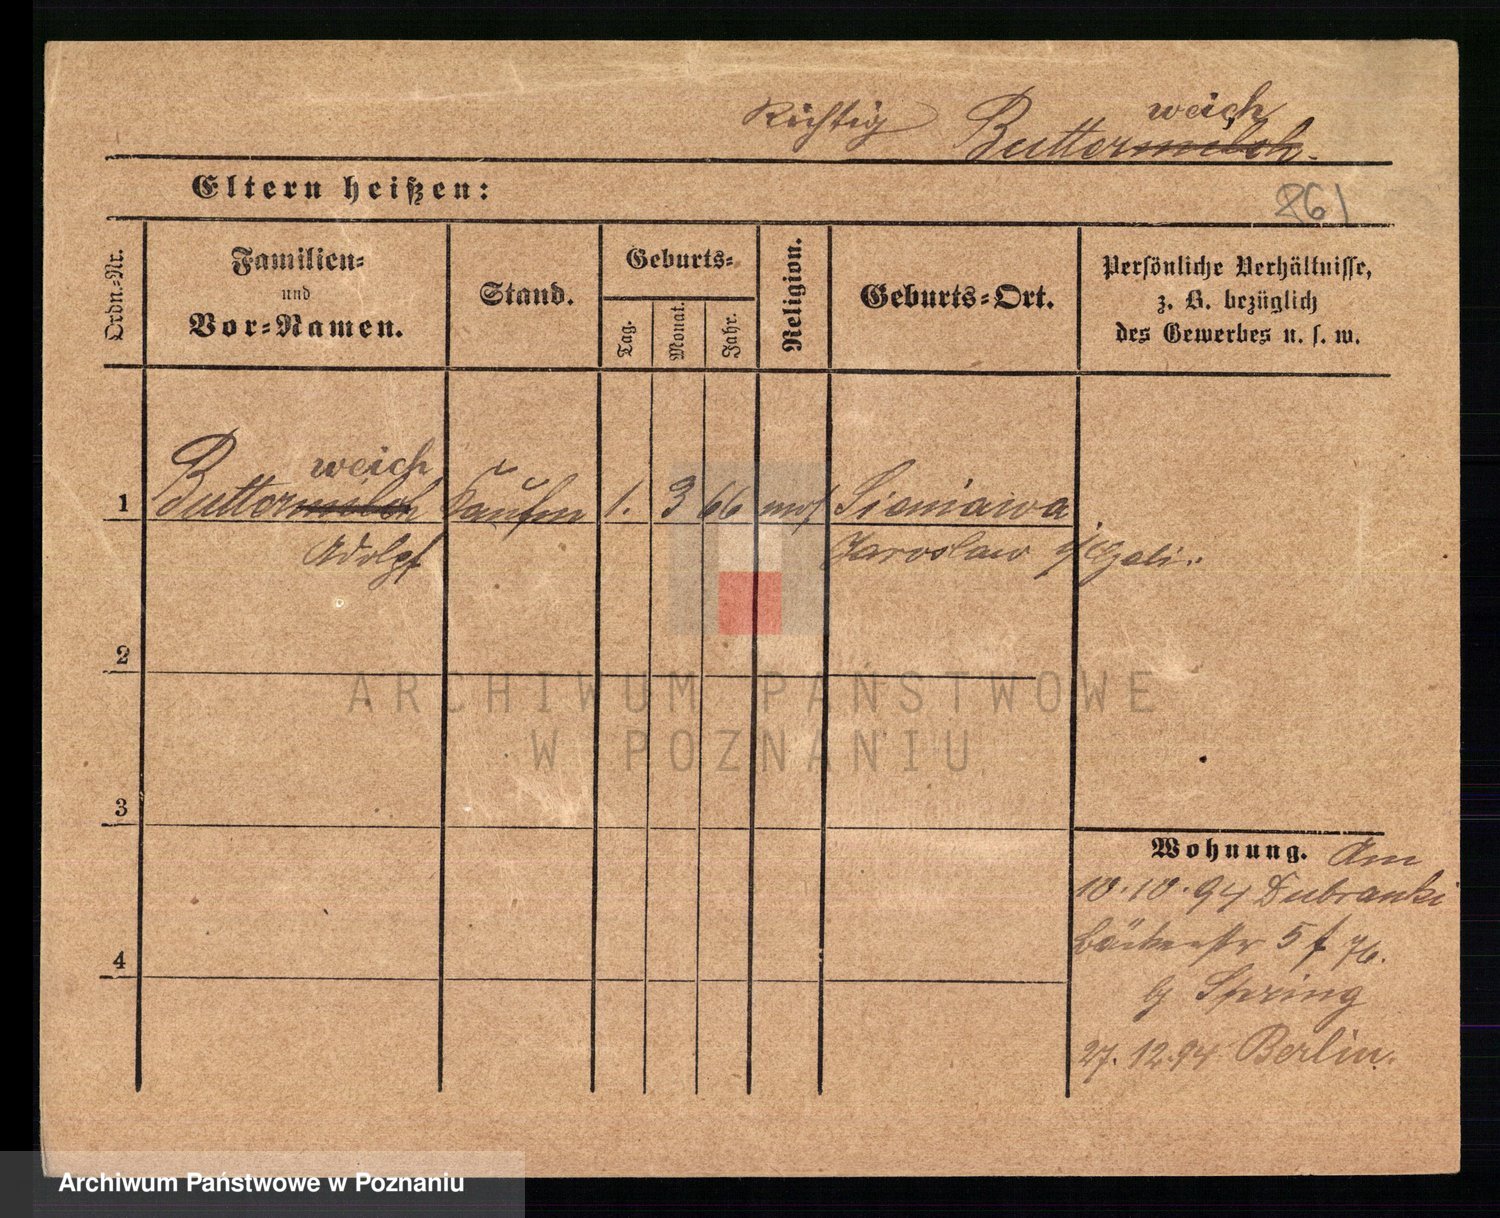 weich
Richtig Buttermelch.
Eltern heißen:
261
Ordn.-Nr.
Familien-
und
Vor-Namen.
Stand.
Geburts-
Tag.
Monat.
Jahr.
Religion.
Geburts-Ort.
Persönliche Verhältnisse,
z. B. bezüglich
des Gewerbes u. s. w.
weich
1 Buttermelch Kaufm 1. 3 66 mos Sieniawa
Adolf Jaroslaw i/Gali.
2
3
4
Wohnung. Am
10.10.94 Dubranki
Bäckerstr 5 f 76.
b/ Spring
27.12.94 Berlin.
ARCHIWUM PAŃSTWOWE
W POZNANIU
Archiwum Państwowe w Poznaniu